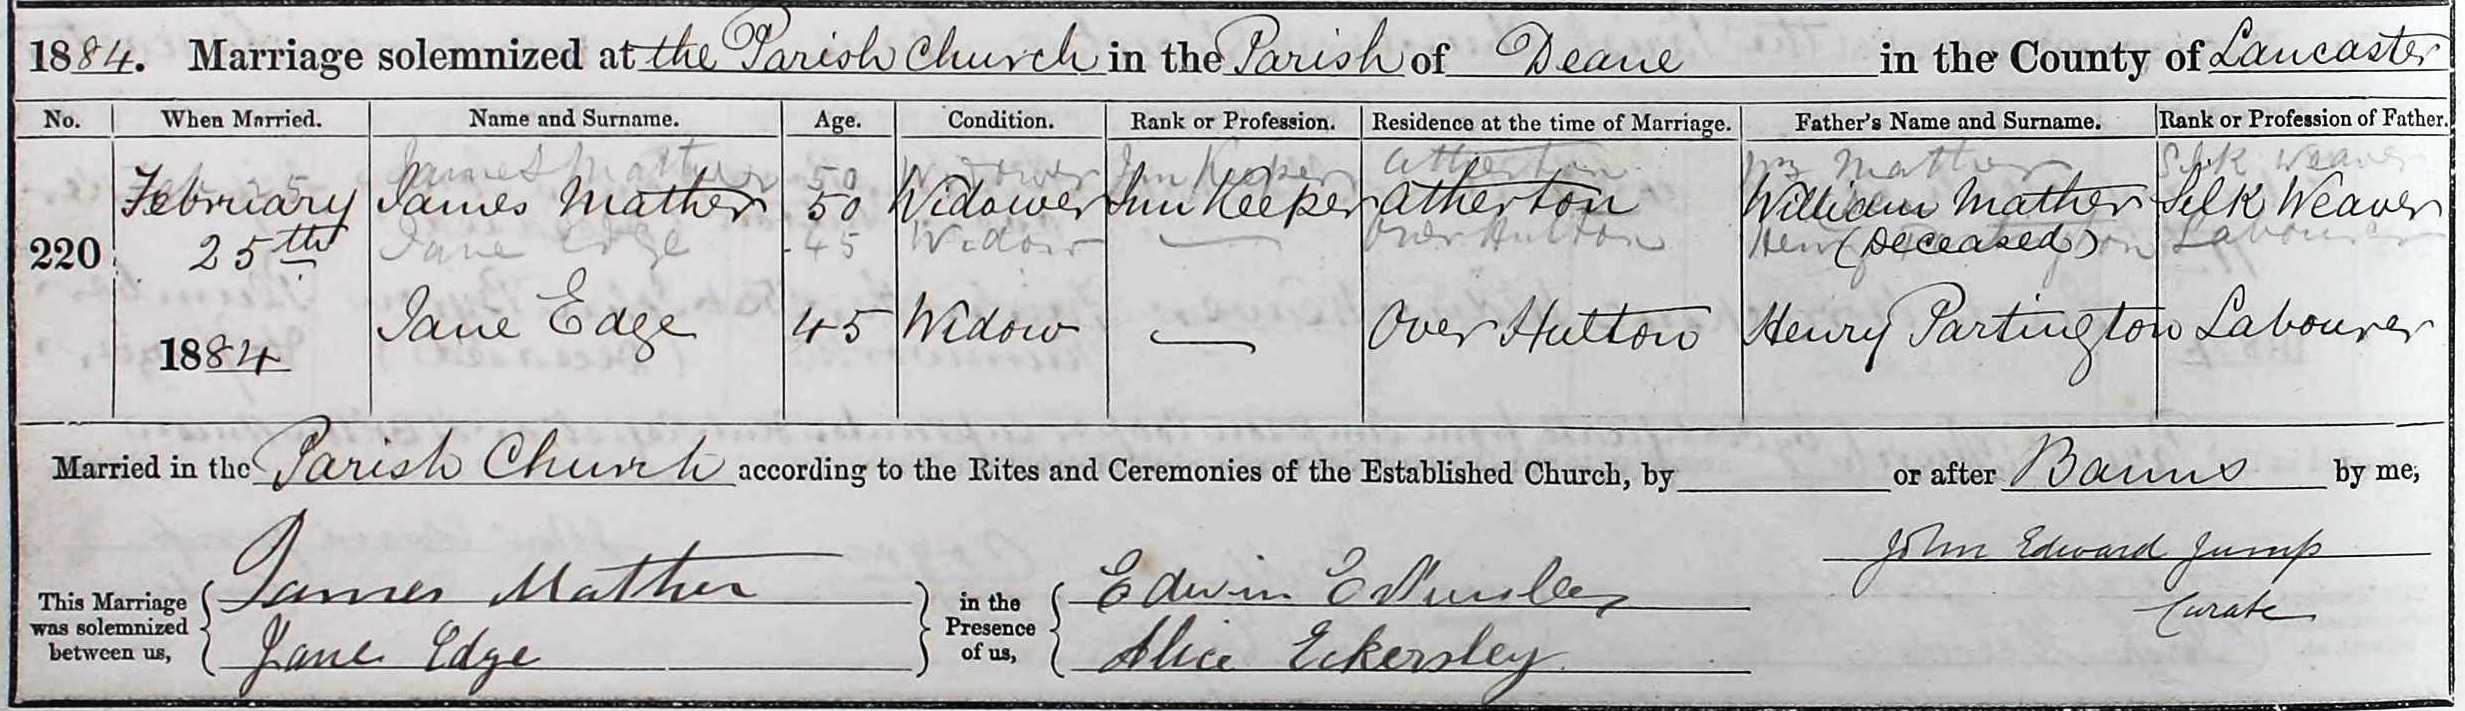 1884. Marriage solemnized at the Parish Church in the Parish of Deane in the County of Lancaster
No. When Married. Name and Surname. Age. Condition. Rank or Profession. Residence at the time of Marriage. Father's Name and Surname. Rank or Profession of Father.
James Mather 50 Widower Inn Keeper Atherton Wm Mather Silk Weaver
February James Mather 50 Widower Inn Keeper Atherton William Mather Silk Weaver
220 25th Jane Edge 45 Widow — Over Hulton (Deceased) Labourer
1884 Jane Edge 45 Widow — Over Hulton Henry Partington Labourer
Married in the Parish Church according to the Rites and Ceremonies of the Established Church, by or after Banns by me,
John Edward Jump
Curate
This Marriage was solemnized between us,
James Mather
Jane Edge
in the Presence of us,
Edwin Eckersley
Alice Eckersley